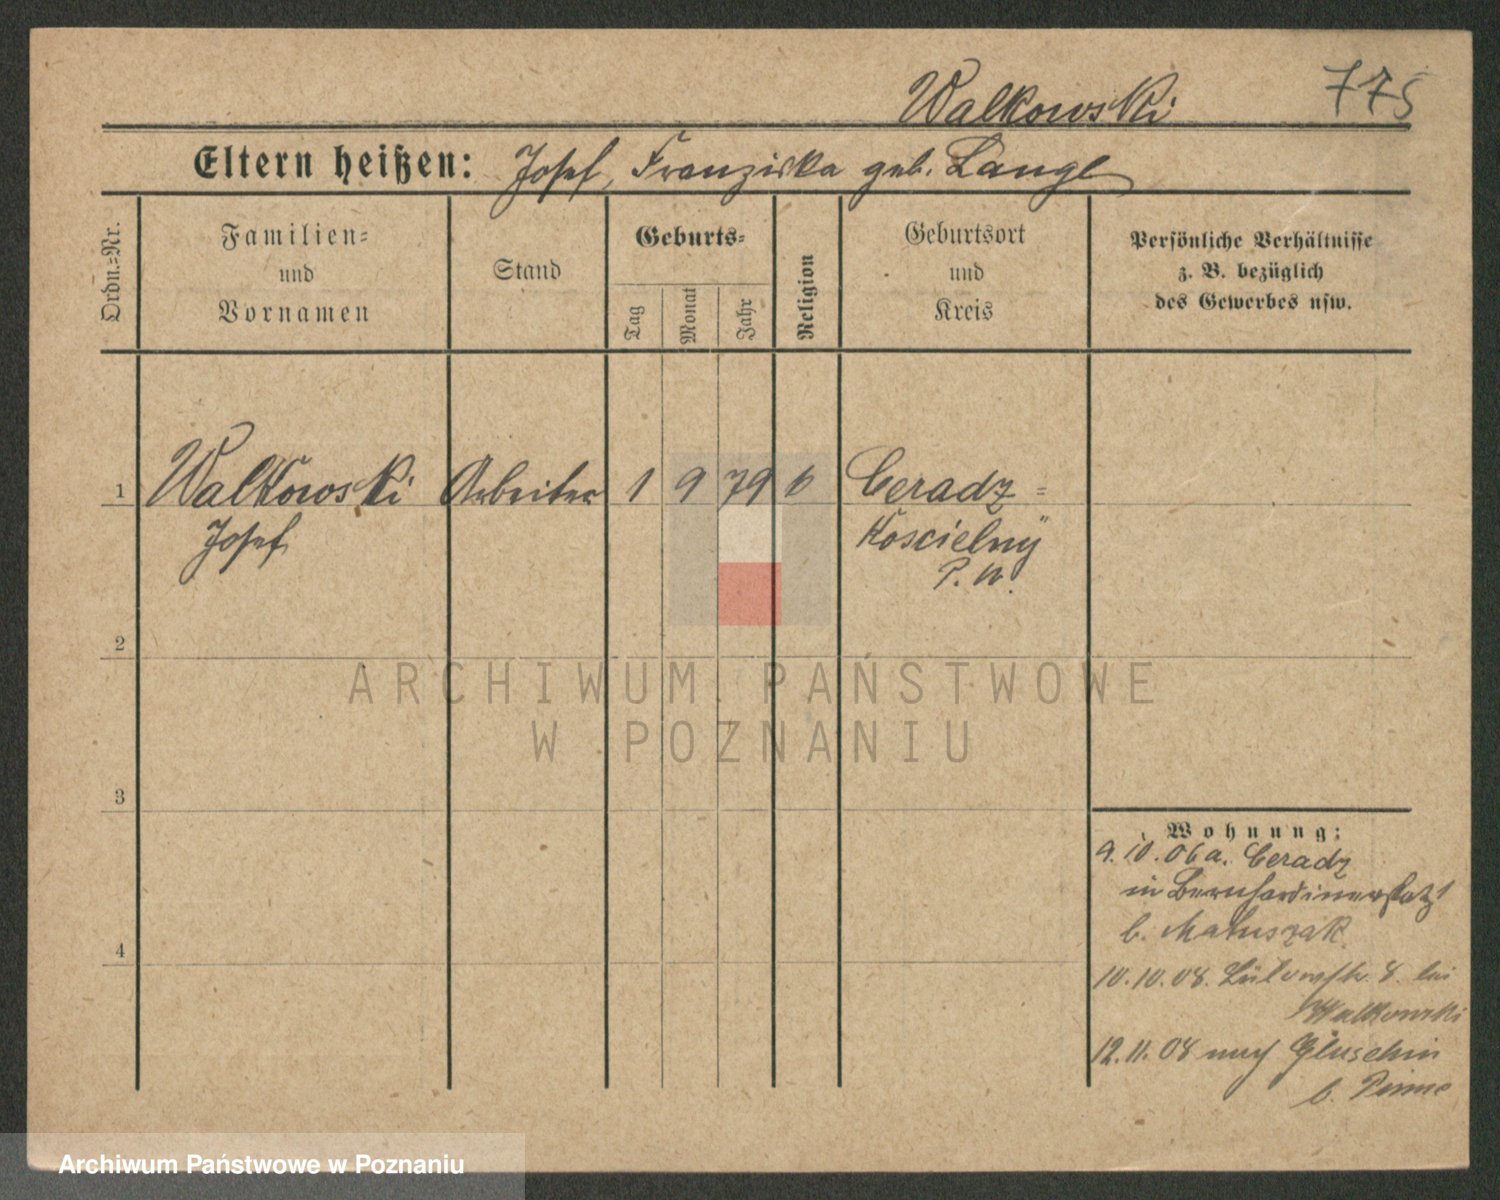 Walkowski 775
Eltern heißen: Josef, Franziska geb. Lange
Ordn.=Nr.
Familien=
und
Vornamen
Stand
Geburts=
Tag
Monat
Jahr
Religion
Geburtsort
und
Kreis
Persönliche Verhältnisse
z. B. bezüglich
des Gewerbes usw.
1 Walkowski Arbeiter 1 9 79 k Ceradz=
Josef Koscielny
P. W.
2
3
4
ARCHIWUM PAŃSTWOWE
W POZNANIU
Wohnung:
9.10.06 a. Ceradz
in Bernhardinerplatz 1
b. Matuszak
10.10.08. Lützowstr. 8. bei
Walkowski
12.11.08 nach Gluschin
b. Pinne
Archiwum Państwowe w Poznaniu